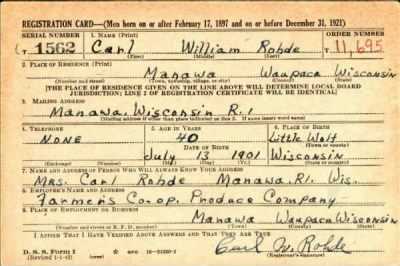 REGISTRATION CARD—(Men born on or after February 17, 1897 and on or before December 31, 1921)
SERIAL NUMBER 1. NAME (Print) ORDER NUMBER
T 1562 Carl William Rohde T 11,695
(First) (Middle) (Last)
2. PLACE OF RESIDENCE (Print)
Manawa Waupaca Wisconsin
(Number and street) (Town, township, village, or city) (County) (State)
[THE PLACE OF RESIDENCE GIVEN ON THE LINE ABOVE WILL DETERMINE LOCAL BOARD
JURISDICTION; LINE 2 OF REGISTRATION CERTIFICATE WILL BE IDENTICAL]
3. MAILING ADDRESS
Manawa, Wisconsin R.1
[Mailing address if other than place indicated on line 2. If same insert word same]
4. TELEPHONE 5. AGE IN YEARS 6. PLACE OF BIRTH
None 40 Little Wolf
DATE OF BIRTH (Town or county)
July 13 1901 Wisconsin
(Exchange) (Number) (Mo.) (Day) (Yr.) (State or country)
7. NAME AND ADDRESS OF PERSON WHO WILL ALWAYS KNOW YOUR ADDRESS
Mrs. Carl Rohde Manawa, R1. Wis.
8. EMPLOYER'S NAME AND ADDRESS
Farmers Co-op. Produce Company
9. PLACE OF EMPLOYMENT OR BUSINESS
Manawa Waupaca Wisconsin
(Number and street or R. F. D. number) (Town) (County) (State)
I AFFIRM THAT I HAVE VERIFIED ABOVE ANSWERS AND THAT THEY ARE TRUE.
D. S. S. Form 1
(Revised 1-1-42) (over) GPO 16-21630-2 Carl W. Rohde
(Registrant's signature)